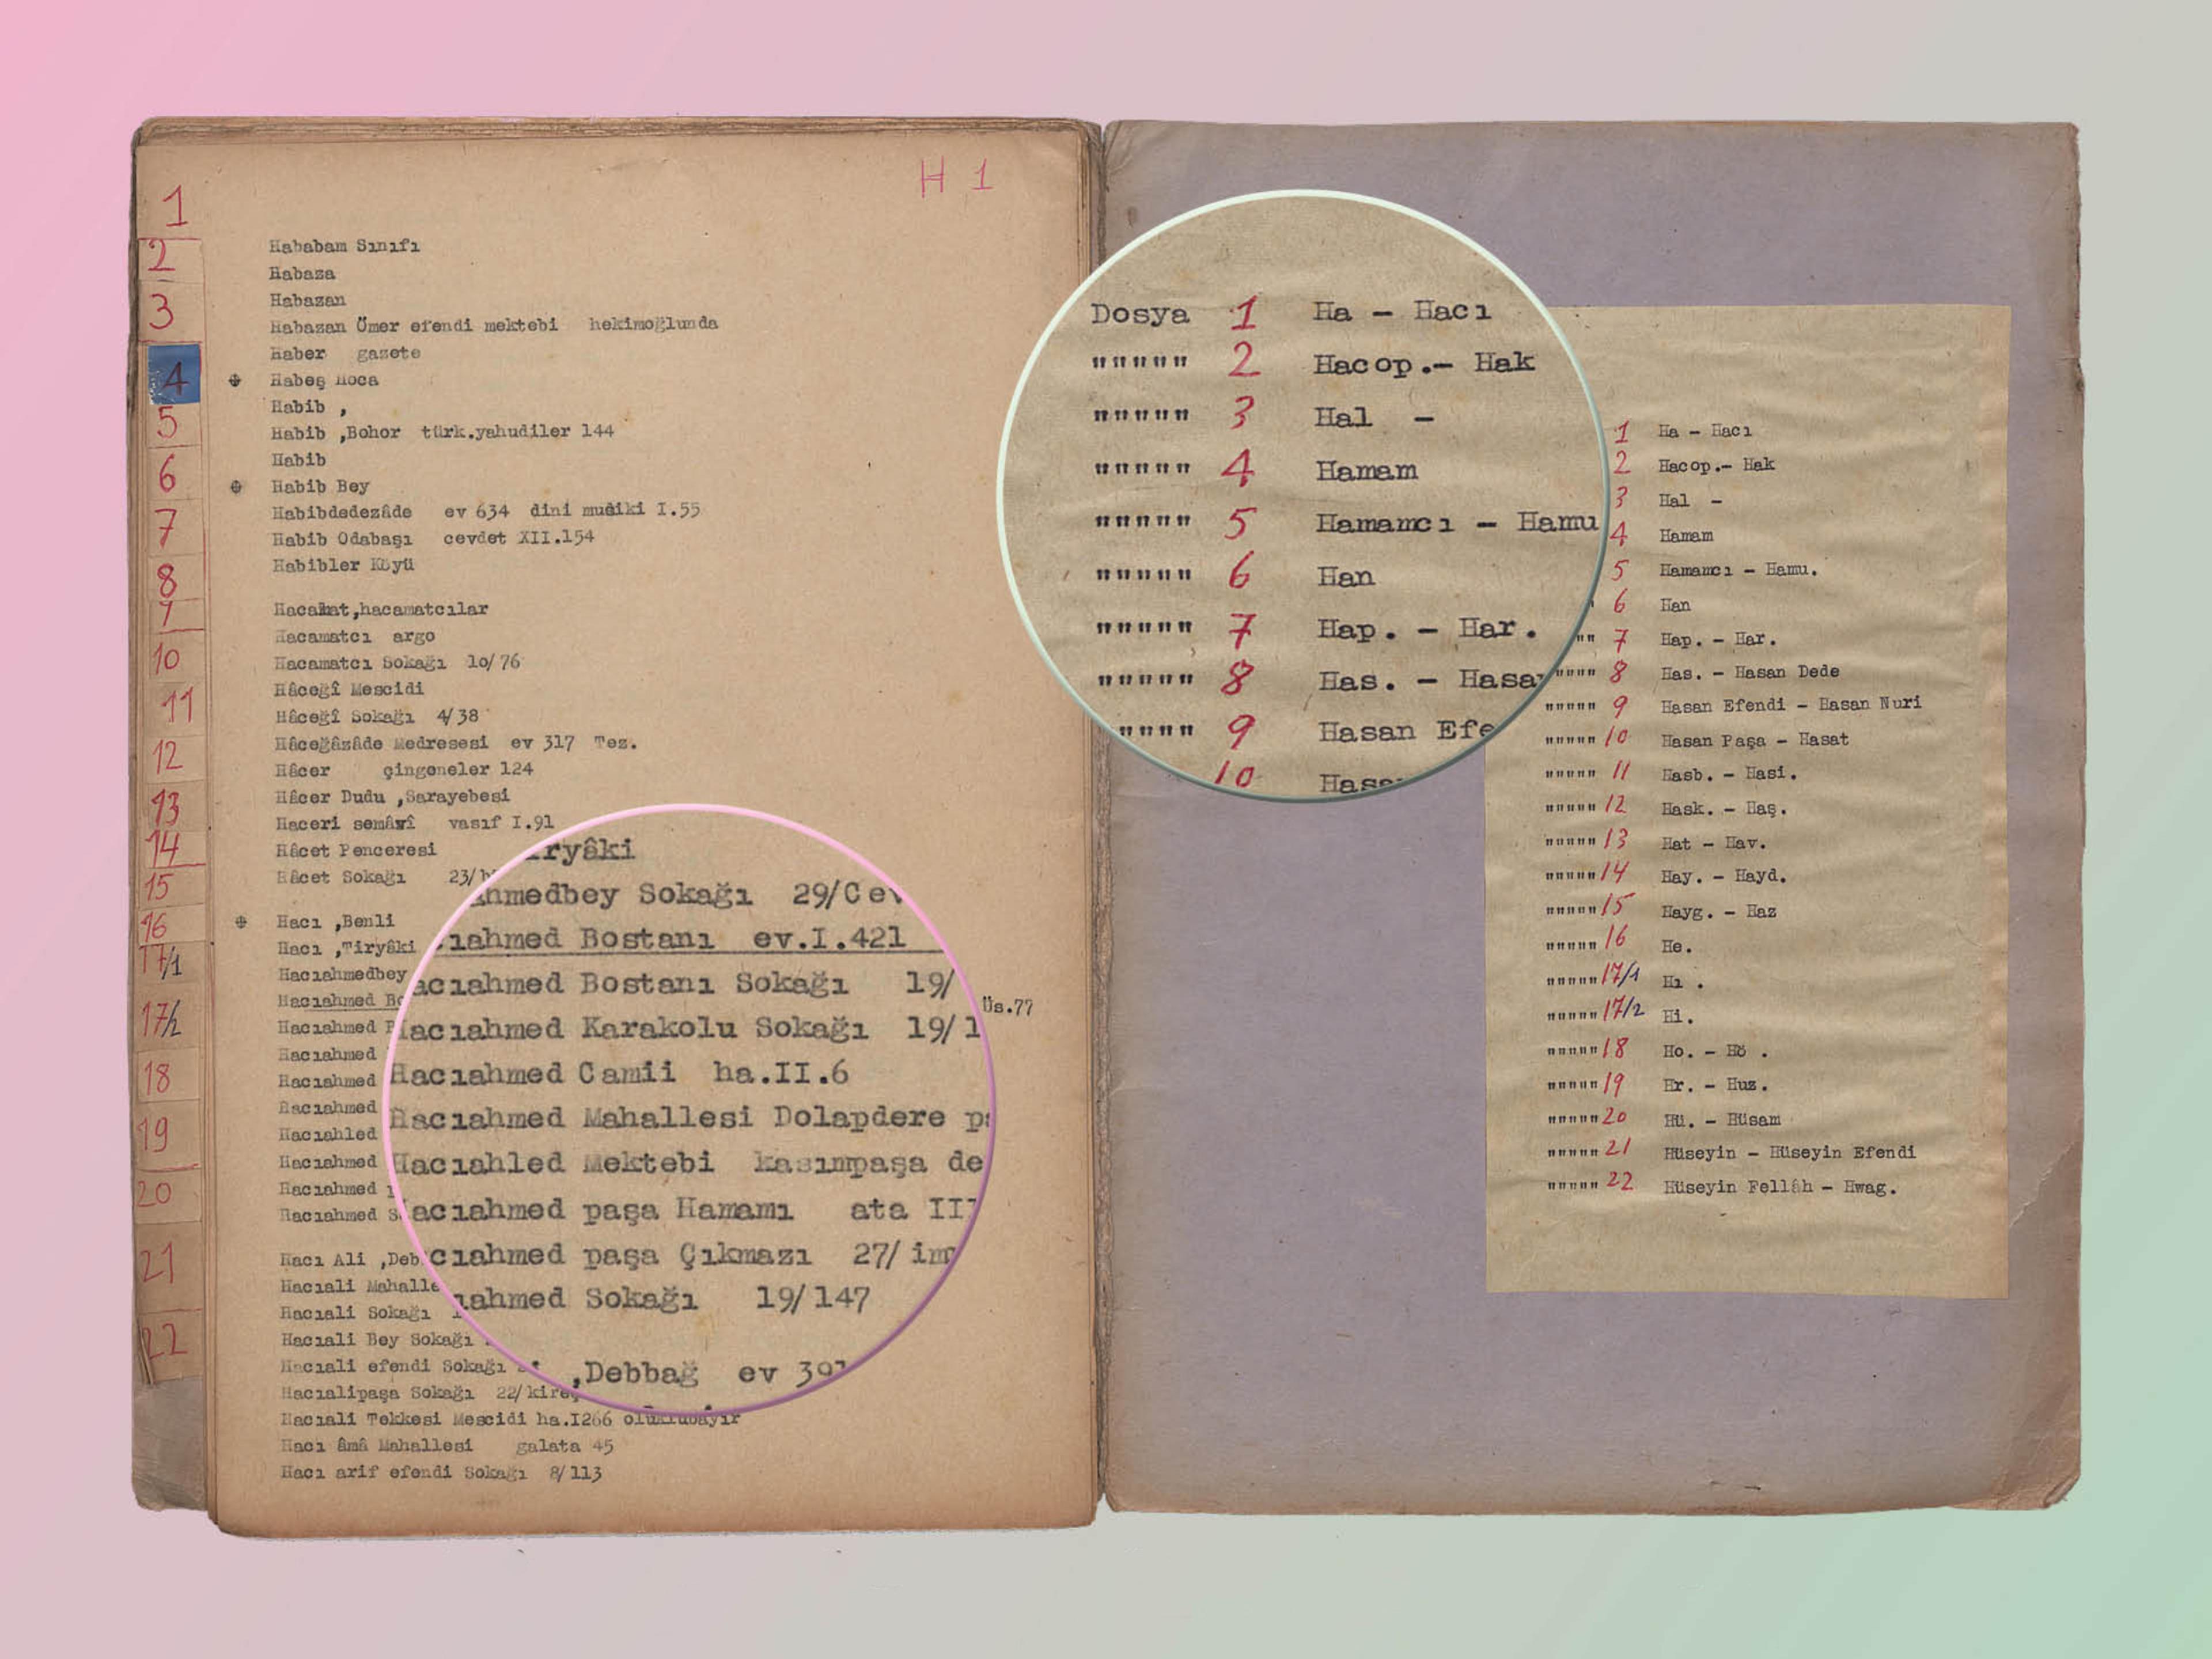 H 1
1
2
3
4
5
6
7
8
10
11
12
13
14
15
16
17/1
17/2
18
19
20
21
22
Hababam Sınıfı
Habaza
Habazan
Habazan Ömer efendi mektebi hekimoğlunda
Haber gazete
Habeş Hoca
Habib ,
Habib ,Bohor türk.yahudiler 144
Habib
Habib Bey
Habibdedezâde ev 634 dini musiki I.55
Habib Odabaşı cevdet XII.154
Habibler Köyü
Hacamat,hacamatcılar
Hacamatcı argo
Hacamatcı Sokağı 10/76
Hâceğî Mescidi
Hâceğî Sokağı 4/38
Hâceğâzâde Medresesi ev 317 Tez.
Hâcer çingeneler 124
Hâcer Dudu ,Sarayebesi
Haceri semâvî vasıf I.91
Hâcet Penceresi
Hâcet Sokağı 23/
Hacı ,Benli
Hacı ,Tiryâki
Hacıahmedbey
Hacıahmed Üs.77
Hacıahmed
Hacıahmed
Hacıahmed
Hacıahmed
Hacıahled
Hacıahmed
Hacıahmed
Hacıahmed
Hacı Ali ,Deb
Hacıali Mahalle
Hacıali Sokağı
Hacıali Bey Sokağı
Hacıali efendi Sokağı
Hacıalipaşa Sokağı 22/kireç
Hacıali Tekkesi Mescidi ha.I266 oluklubayır
Hacı âmâ Mahallesi galata 45
Hacı arif efendi Sokağı 8/113
ryâki
hmedbey Sokağı 29/Cev
ıahmed Bostanı ev.I.421
acıahmed Bostanı Sokağı 19/
Hacıahmed Karakolu Sokağı 19/1
Hacıahmed Camii ha.II.6
Hacıahmed Mahallesi Dolapdere
Hacıahled Mektebi kasımpaşa de
Hacıahmed paşa Hamamı ata II
cıahmed paşa Çıkmazı 27/im
ıahmed Sokağı 19/147
,Debbağ ev 39
Dosya 1 Ha - Hacı
""""" 2 Hacop.- Hak
""""" 3 Hal -
""""" 4 Hamam
""""" 5 Hamamcı - Hamu
""""" 6 Han
""""" 7 Hap. - Har.
""""" 8 Has. - Hasa
"""" 9 Hasan Efe
10 Hasa
1 Ha - Hacı
2 Hacop.- Hak
3 Hal -
4 Hamam
5 Hamamcı - Hamu.
6 Han
"" 7 Hap. - Har.
"""" 8 Has. - Hasan Dede
""""" 9 Hasan Efendi - Hasan Nuri
""""" 10 Hasan Paşa - Hasat
""""" 11 Hasb. - Hasi.
""""" 12 Hask. - Haş.
""""" 13 Hat - Hav.
""""" 14 Hay. - Hayd.
""""" 15 Hayg. - Haz
""""" 16 He.
""""" 17/1 Hı .
""""" 17/2 Hi.
""""" 18 Ho. - Hö .
""""" 19 Hr. - Huz.
""""" 20 Hü. - Hüsam
""""" 21 Hüseyin - Hüseyin Efendi
""""" 22 Hüseyin Fellâh - Hwag.